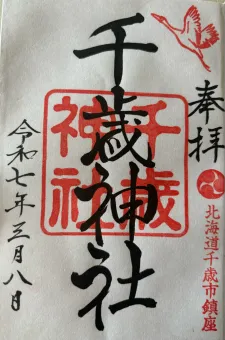 奉拝
北海道千歳市鎮座
千歳神社
千歳神社
令和七年三月八日